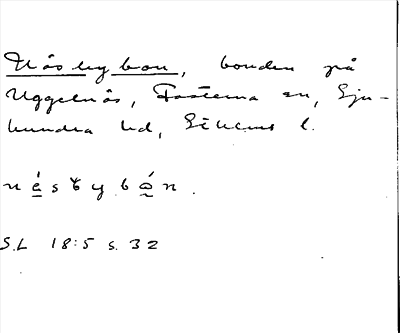 Näsbybon, bonden på
Uggelnäs, Fasterna sn, Sju-
hundra hd, Sthlms l.
n é s b y b ó n .
S.L 18:5 s. 32